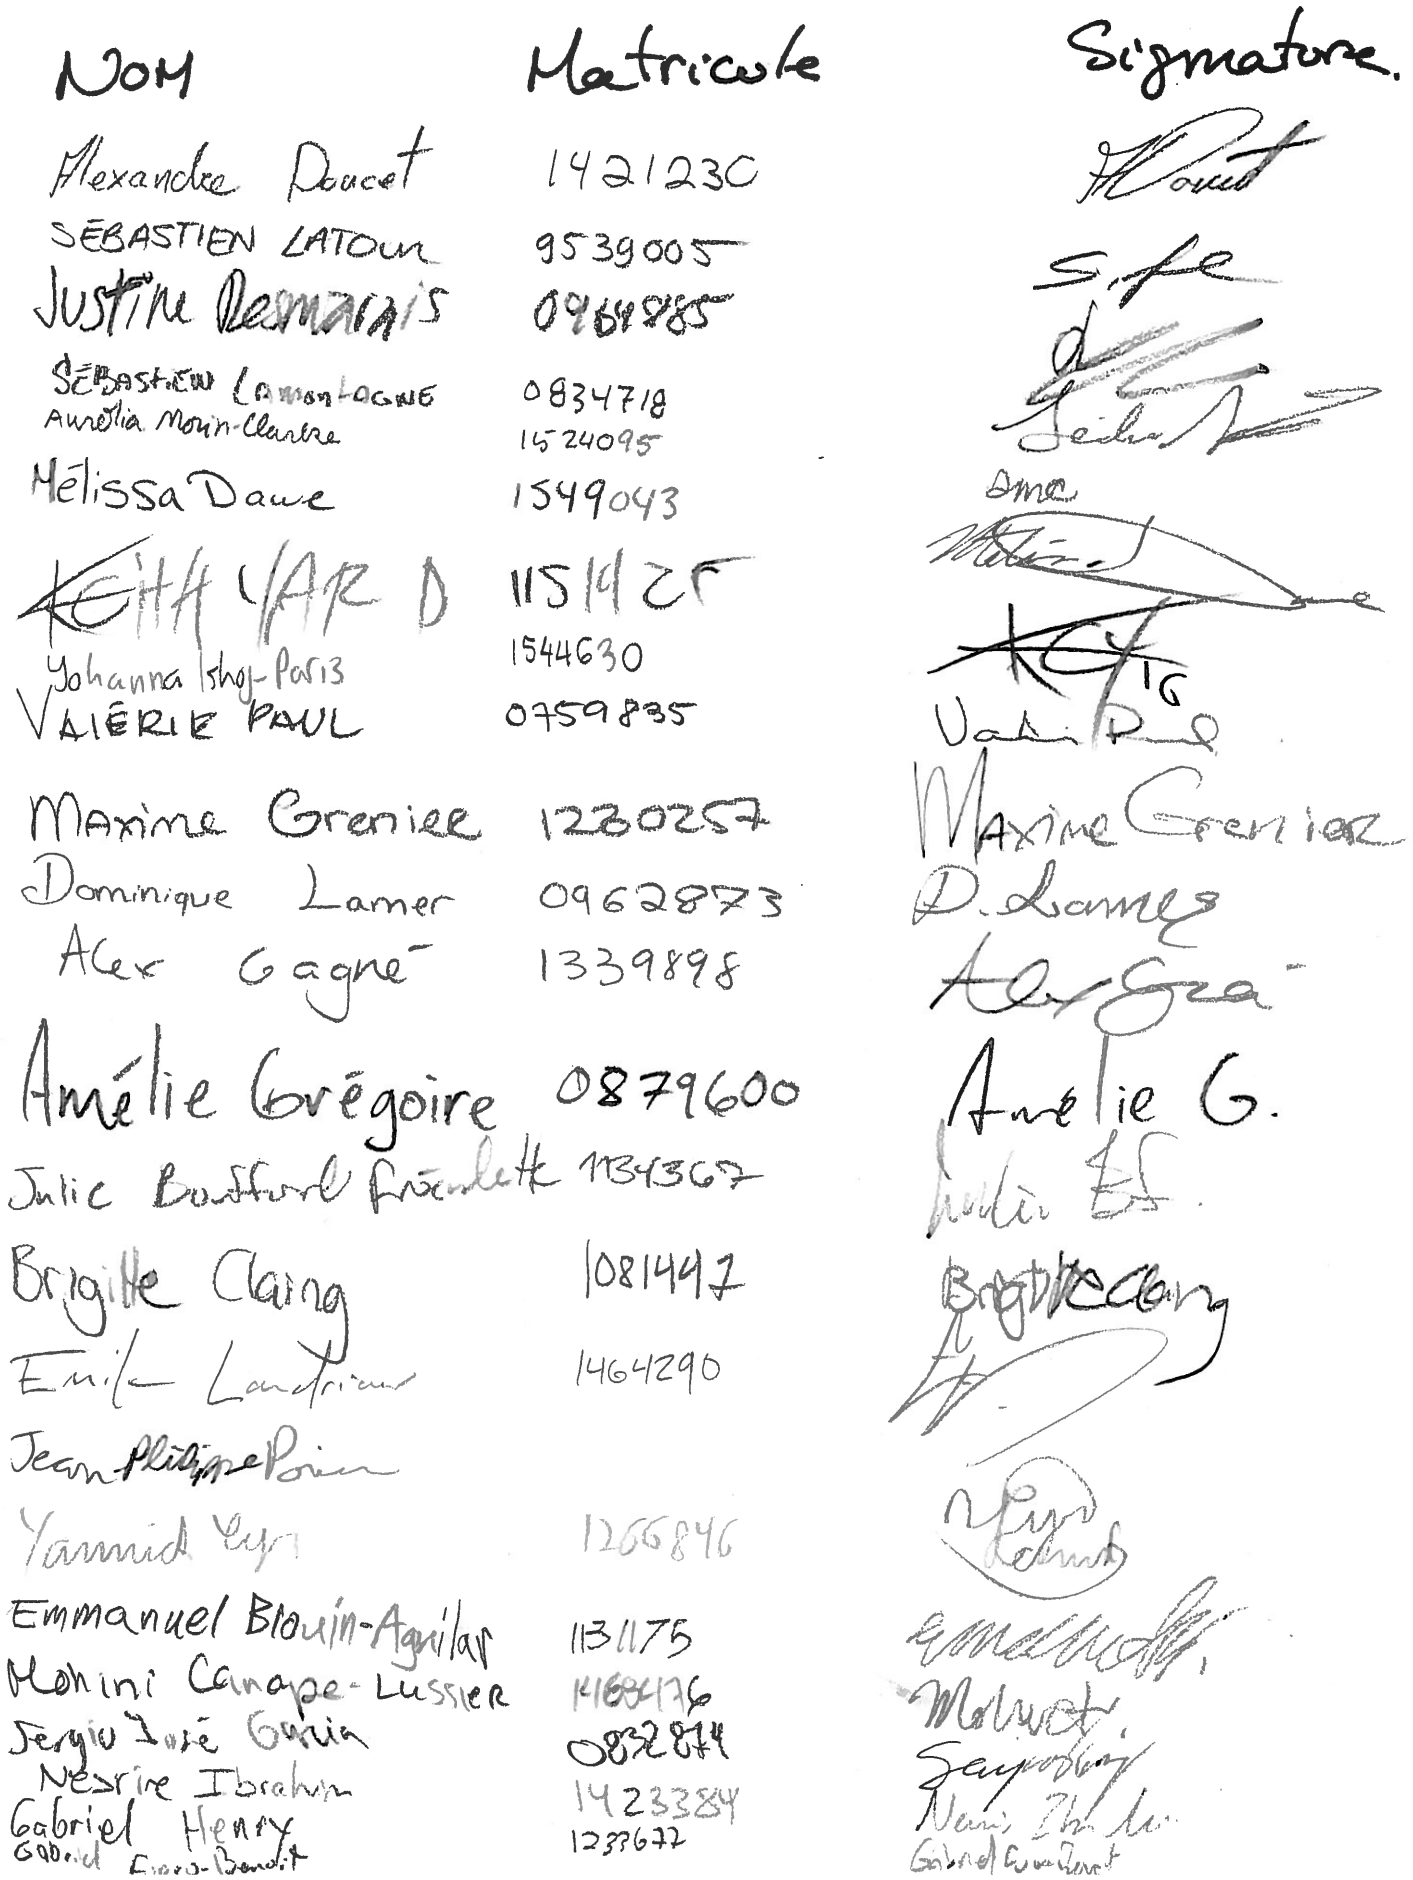 NOM Matricule Signature.
Alexandre Doucet 1421230 A Doucet
SÉBASTIEN LATOUR 9539005
Justine Desmarais 0964885
SÉBASTIEN LAMONTAGNE 0834718
Aurélia Morin-Clarke 1524095 amc
Mélissa Dawe 1549043
KEITH YARD KEY
Yohanna Ishoj-Paris 1544630
VALÉRIE PAUL 0759835 Valérie Paul
Maxime Grenier 1230257 Maxime Grenier
Dominique Lamer 0962873 D. Lamer
Alex Gagné 1339898 Alex
Amélie Grégoire 0879600 Amélie G.
Julie Bouffard 1134367 Julie
Brigitte Claing 1081447 Brigitte Claing
Emile Landriau 1464290
Jean-Philippe
Yannick Cyr 1266846
Emmanuel Blouin-Aguilar 1131175
Mohini Canape-Lussier
Sergio José Garcia 0832874
Nesrine Ibrahim 1423384
Gabriel Henry 1233677
Gabriel Gabriel